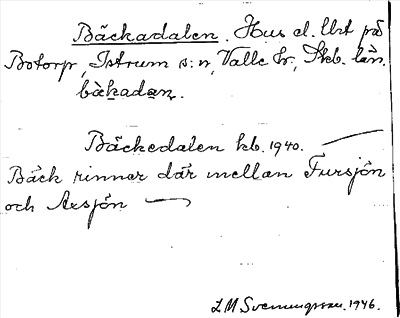 Bäckadalen. Hus el. lht på
Botorp, Istrum s:n, Valle hr, Skb. län.
bàkadaꞥ.
Bäckedalen kb. 1940.
Bäck rinner där mellan Fursjön
och Axsjön
L M Svenungsson. 1946.